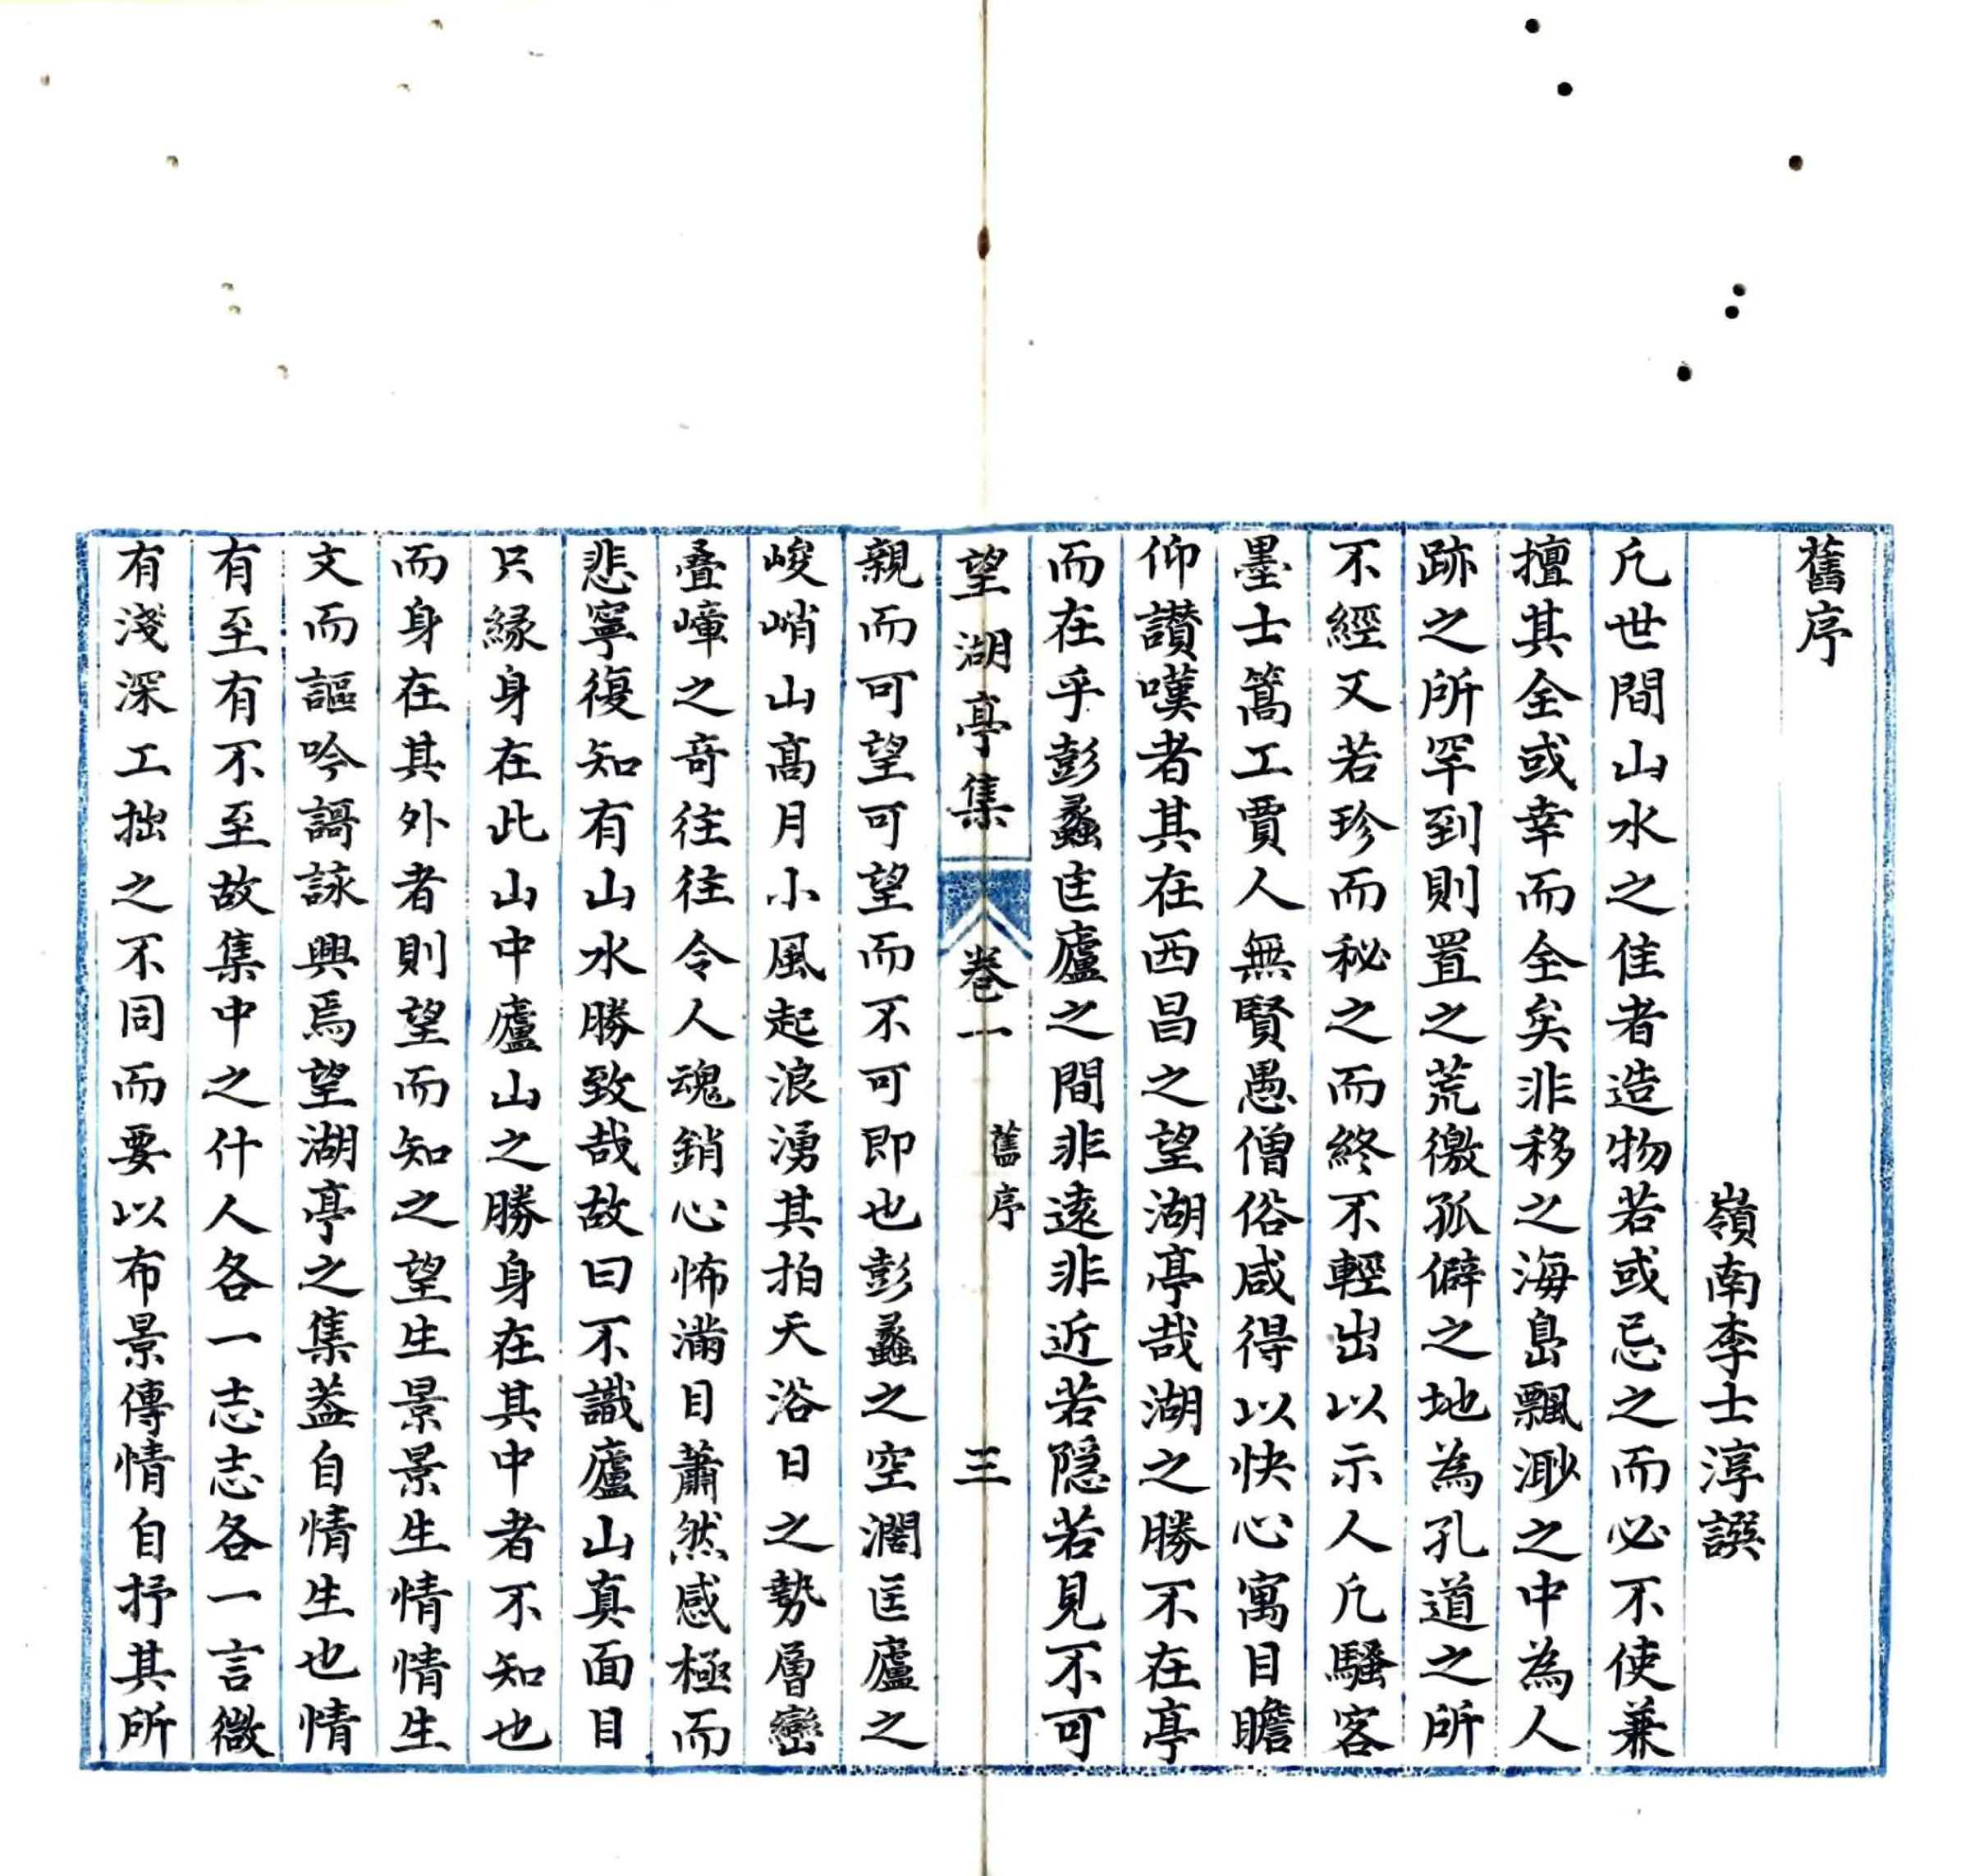 舊序
嶺南李士淳譔
凡世間山水之佳者造物若或忌之而必不使兼
擅其全或幸而全矣非移之海島飄渺之中為人
跡之所罕到則置之荒徼孤僻之地為孔道之所
不經又若珍而秘之而終不輕出以示人凡騷客
墨士篙工賈人無賢愚僧俗咸得以快心寓目瞻
仰讃嘆者其在西昌之望湖亭哉湖之勝不在亭
而在乎彭蠡匡廬之間非遠非近若隱若見不可
望湖亭集 卷一 舊序 三
親而可望可望而不可即也彭蠡之空濶匡廬之
峻峭山髙月小風起浪湧其拍天浴日之勢層巒
叠嶂之奇往往令人魂銷心怖滿目蕭然感極而
悲寧復知有山水勝致哉故曰不識廬山真面目
只緣身在此山中廬山之勝身在其中者不知也
而身在其外者則望而知之望生景景生情情生
文而謳吟謌詠興焉望湖亭之集葢自情生也情
有至有不至故集中之什人各一志志各一言微
有淺深工拙之不同而要以布景傳情自抒其所